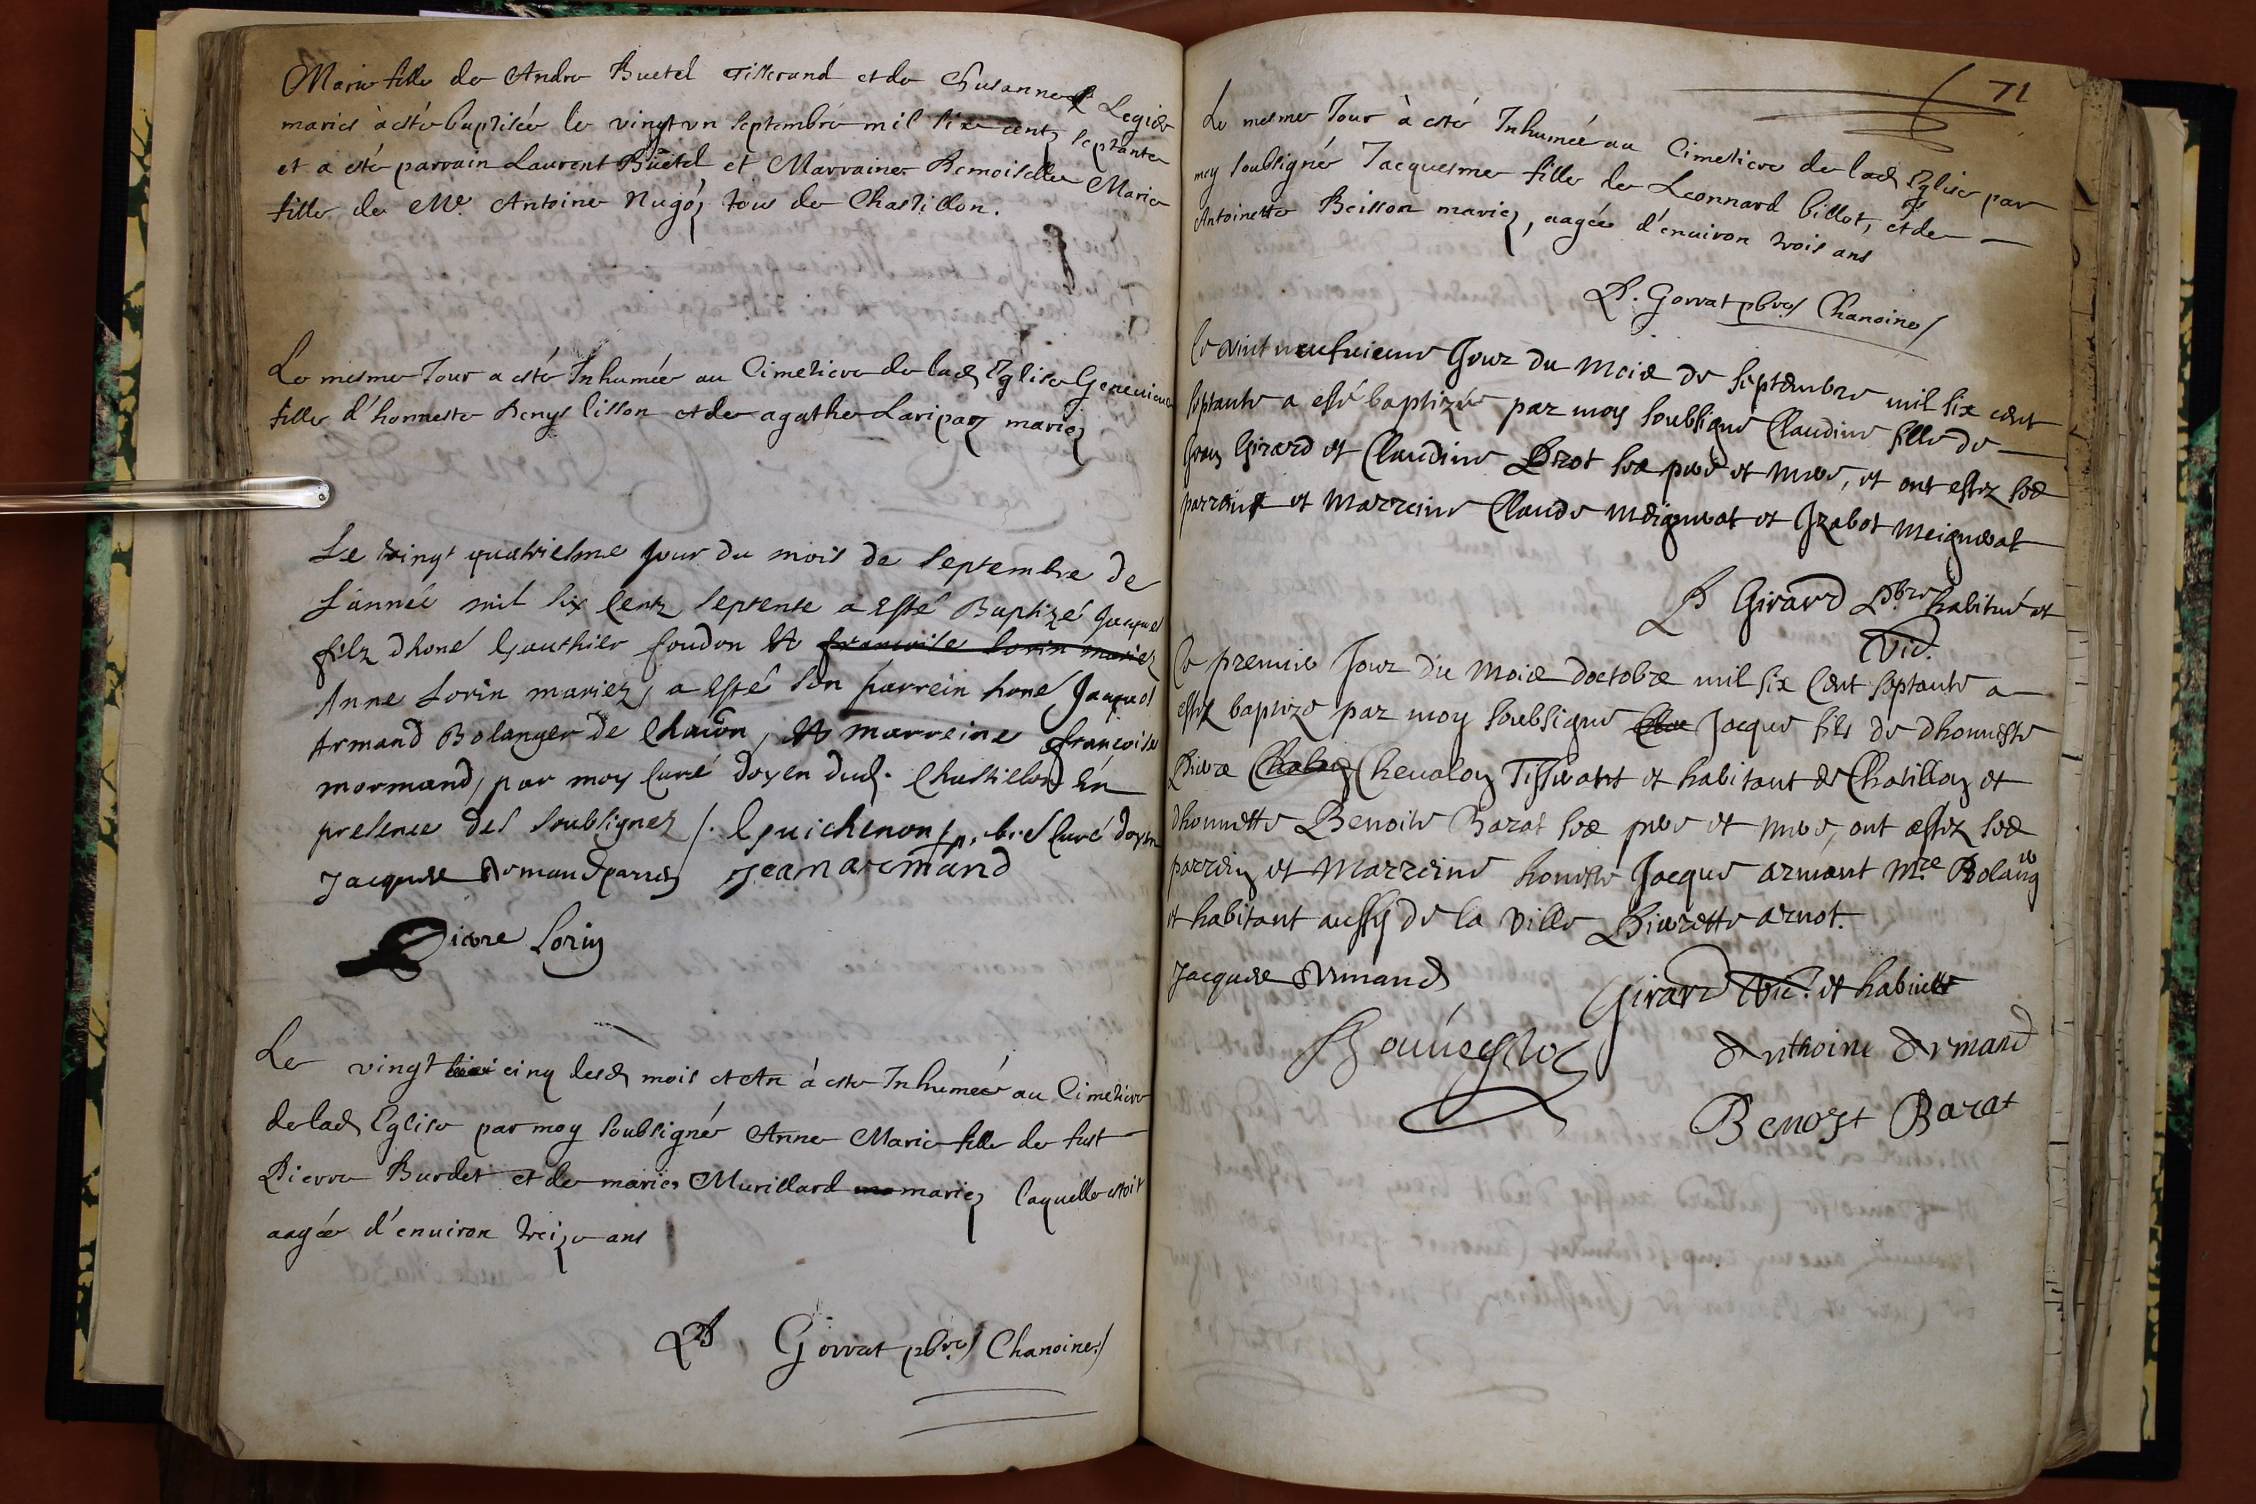 Marie fille de Andre Buetel Tisserand et de Chusanne Legier
mariés à esté baptisée le vingt vn septembre mil six centz septante
et a esté parrain Laurent Buetel et Marraine Demoiselle Marie
fille de Me. Antoine Nugóz tous de Chastillon.
Le mesme Jour a esté Inhumée au Cimetiere de lad Eglise Geneuieue
fille d'honneste Denys lisson et de agathe Laripaz mariez
Le vingt quatriesme Jour du mois de septembre de
L'année mil six Centz septente a esté Baptizé Jacque
filz dhoné Gauthier foudon et francoise Lorin mariez
Anne Lorin mariez, a esté son parrein honé Jacques
Armand Bolanger de Chaôn, et marreine francoise
mormand, par moy Curé doyen dud. Chastillon En
presence des soubsignez /. Guichenon pbre Curé doyen
Jacques Armand parrein Jean Armand
Pierre Lorin
Le vingt cinq desd mois et An à esté Inhumeé au Cimetiere
de lad Eglise par moy soubsigné Anne Marie fille de fust
Pierre Burdet et de marie Murillard mariez laquelle estoit
aagée d'enuiron treize ans
P Gorrat pbre Chanoine
71
Le mesme Jour à esté Inhumeé au Cimetiere de lad Eglise par
moy soubsigné Jacquesme fille de Leonnard billot, et de
Antoinette Beisson mariez, aagée d'enuiron trois ans
P. Gorrat pbre Chanoine
le vint neufuieme Jour du Mois de septembre mil six cent
septante a esté baptizée par moy soubsigné Claudine fille de
Jean Girard et Claudine Brot ses pere et mere, et ont estez ses
parrain et Marreine Claude Meignerat et Izabot Meignerat
P Girard Pbre habitué et
Vic.
le premier Jour du Mois doctobre mil six Cent septante a
esté baptize par moy soubsigne Jacque fils de dhonneste
Pierre Chalon Cheualon Tisserant et habitant de Chatillon et
dhonnette Benoite Barat ses pere et mere, ont estez ses
parrein et Marreine honeste Jacque armant Mre Bolang
er
et habitant aussy de la Ville Pierrette arnot.
Jacques Armand
Girard Vic. et habitué
Anthoine Armand
Benoist Barat